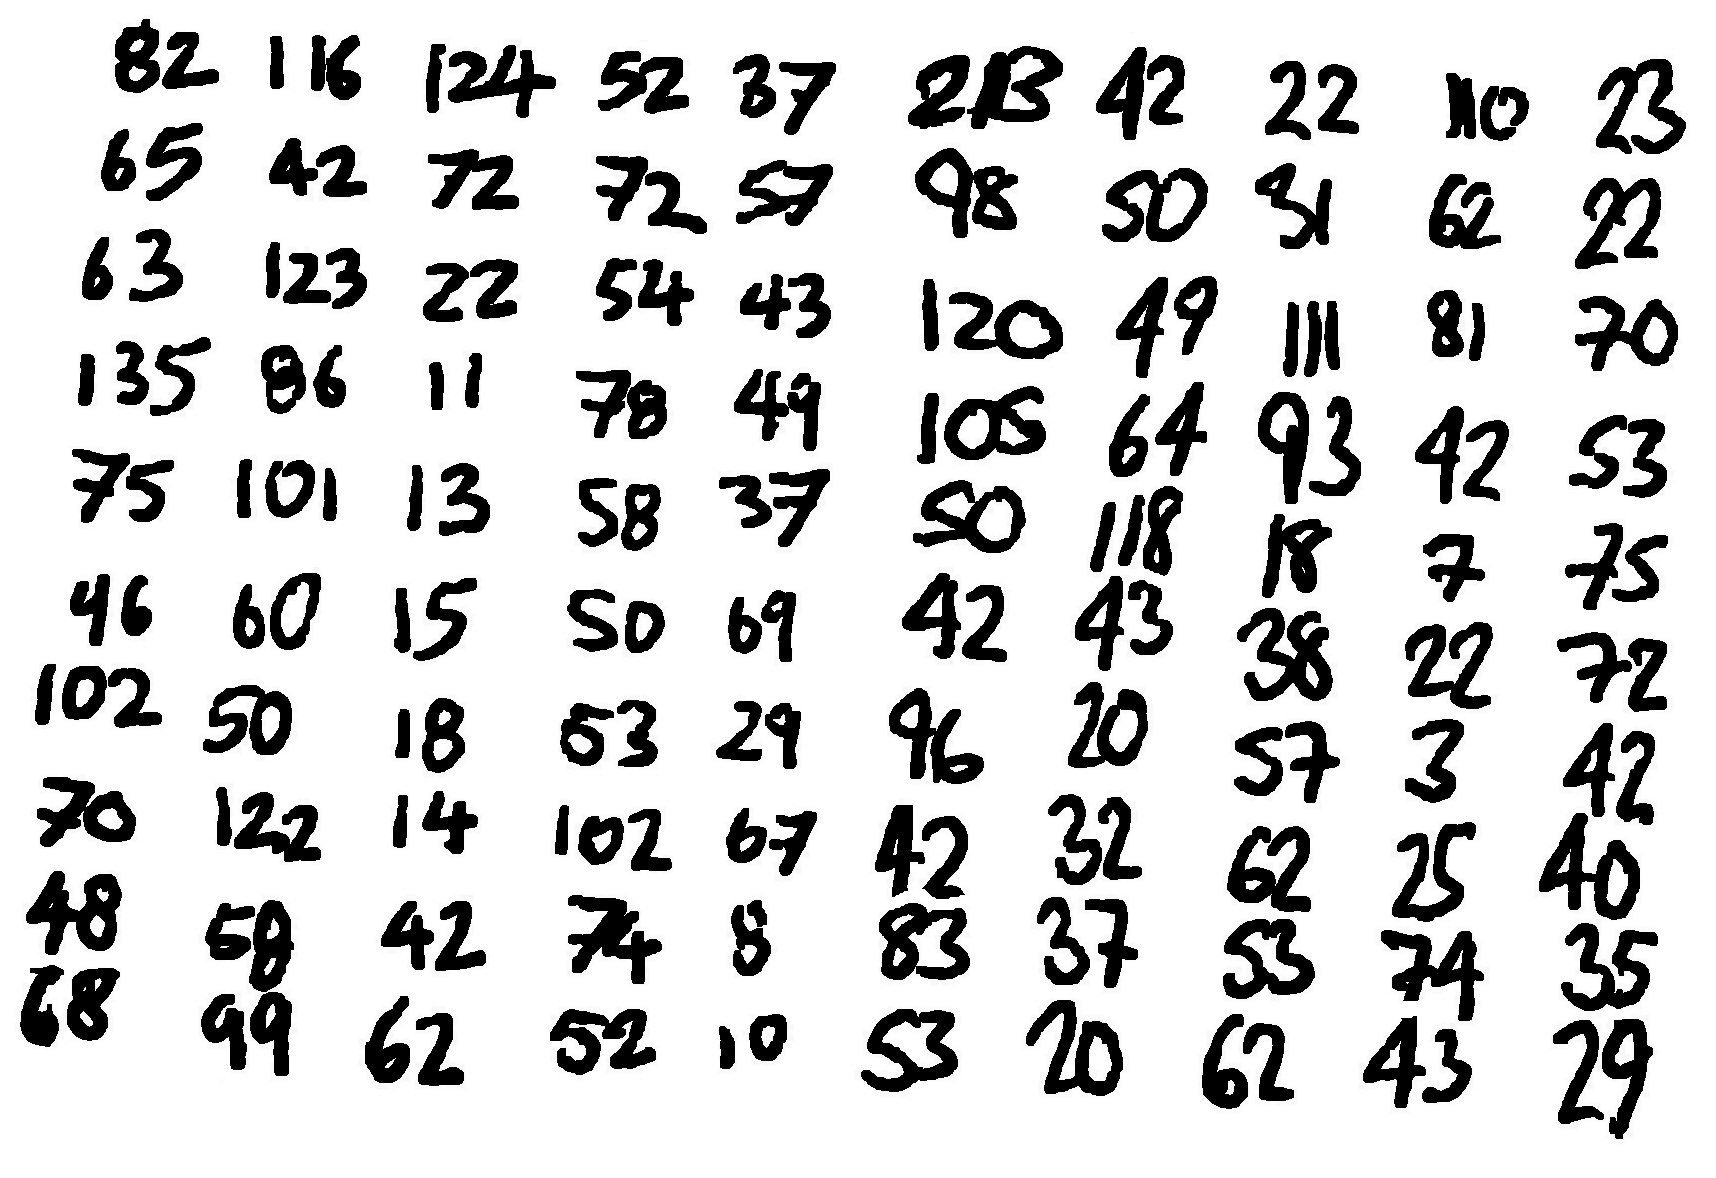 82 116 124 52 37 213 42 22 110 23
65 42 72 72 57 98 50 31 62 22
63 123 22 54 43 120 49 111 81 70
135 86 11 78 49 105 64 93 42 53
75 101 13 58 37 50 118 18 7 75
46 60 15 50 69 42 43 38 22 72
102 50 18 53 29 96 20 57 3 42
70 122 14 102 67 42 32 62 25 40
48 58 42 74 8 83 37 53 74 35
68 99 62 52 10 53 20 62 43 29